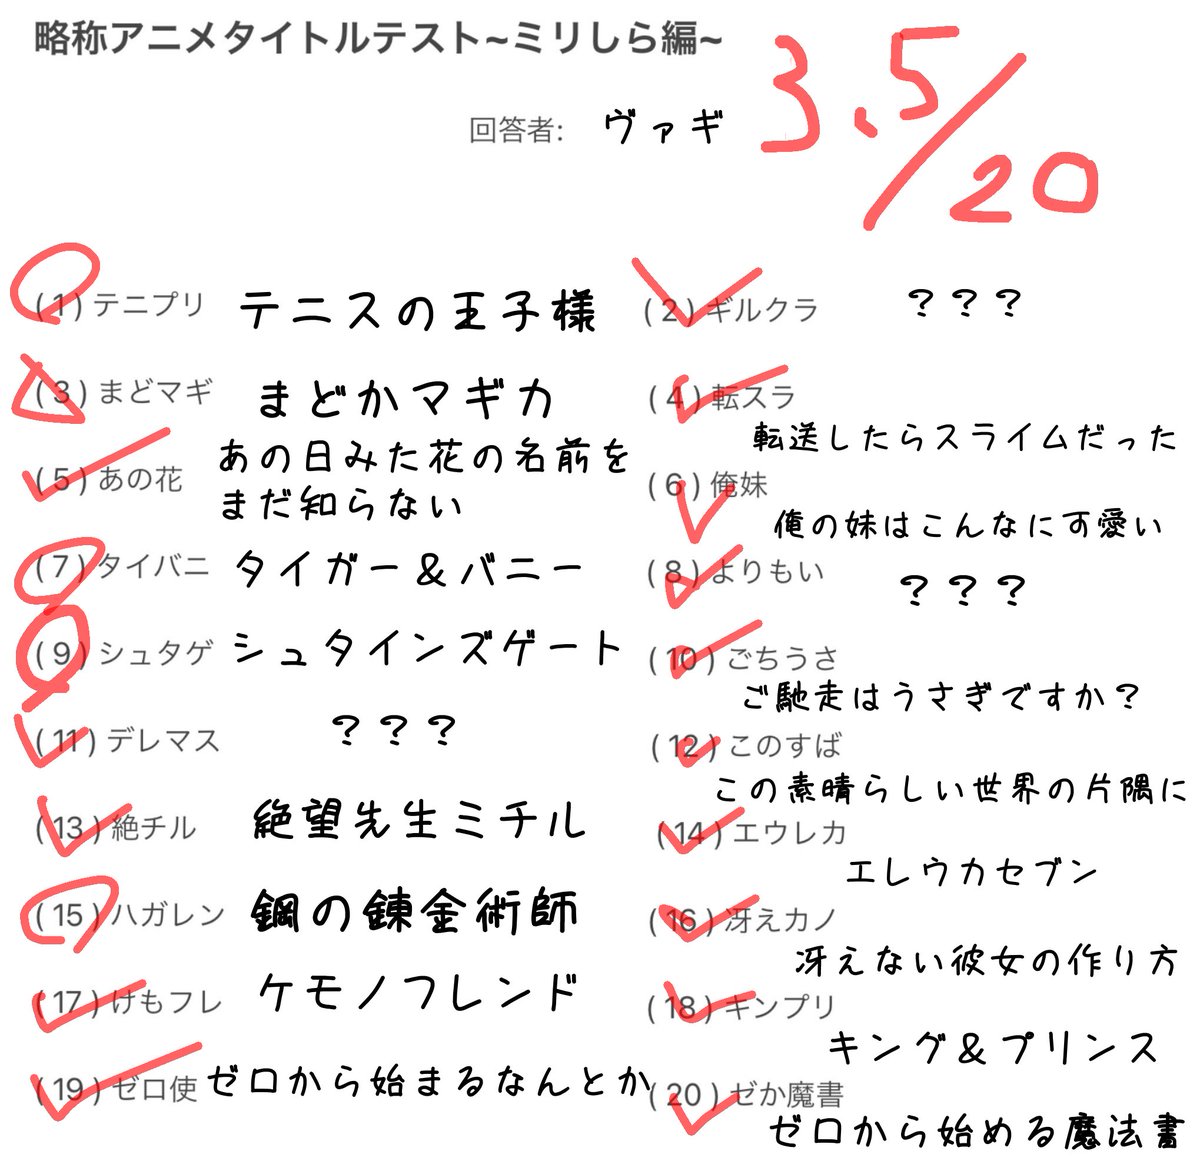 略称アニメタイトルテスト~ミリしら編~
3.5/20
回答者: ヴァギ
(1)テニプリ テニスの王子様
(2)ギルクラ ???
(3)まどマギ まどかマギカ
(4)転スラ
転送したらスライムだった
(5)あの花 あの日みた花の名前を
まだ知らない
(6)俺妹
俺の妹はこんなに可愛い
(7)タイバニ タイガー&バニー
(8)よりもい ???
(9)シュタゲ シュタインズゲート
(10)ごちうさ
ご馳走はうさぎですか?
(11)デレマス ???
(12)このすば
この素晴らしい世界の片隅に
(13)絶チル 絶望先生ミチル
(14)エウレカ
エレウカセブン
(15)ハガレン 鋼の錬金術師
(16)冴えカノ
冴えない彼女の作り方
(17)けもフレ ケモノフレンド
(18)キンプリ
キング&プリンス
(19)ゼロ使 ゼロから始まるなんとか
(20)ゼか魔書
ゼロから始める魔法書